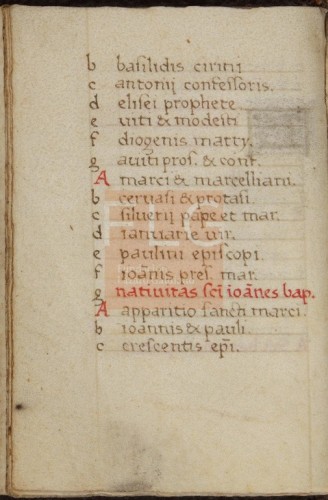 b basilidis cirini
c antonij confessoris.
d elisei prophete
e uiti & modesti
f diogenis marty.
g auiti pros. & conf.
A marci & marcelliani.
b ceruasi & protasi.
c siluerij pape et mar.
d ianuarie uir.
e paulini episcopi.
f ioãnis pres. mar.
g natiuitas sc̃i ioãnes bap.
A apparitio sancti marci.
b ioannis & pauli.
c crescentis ep̃i.